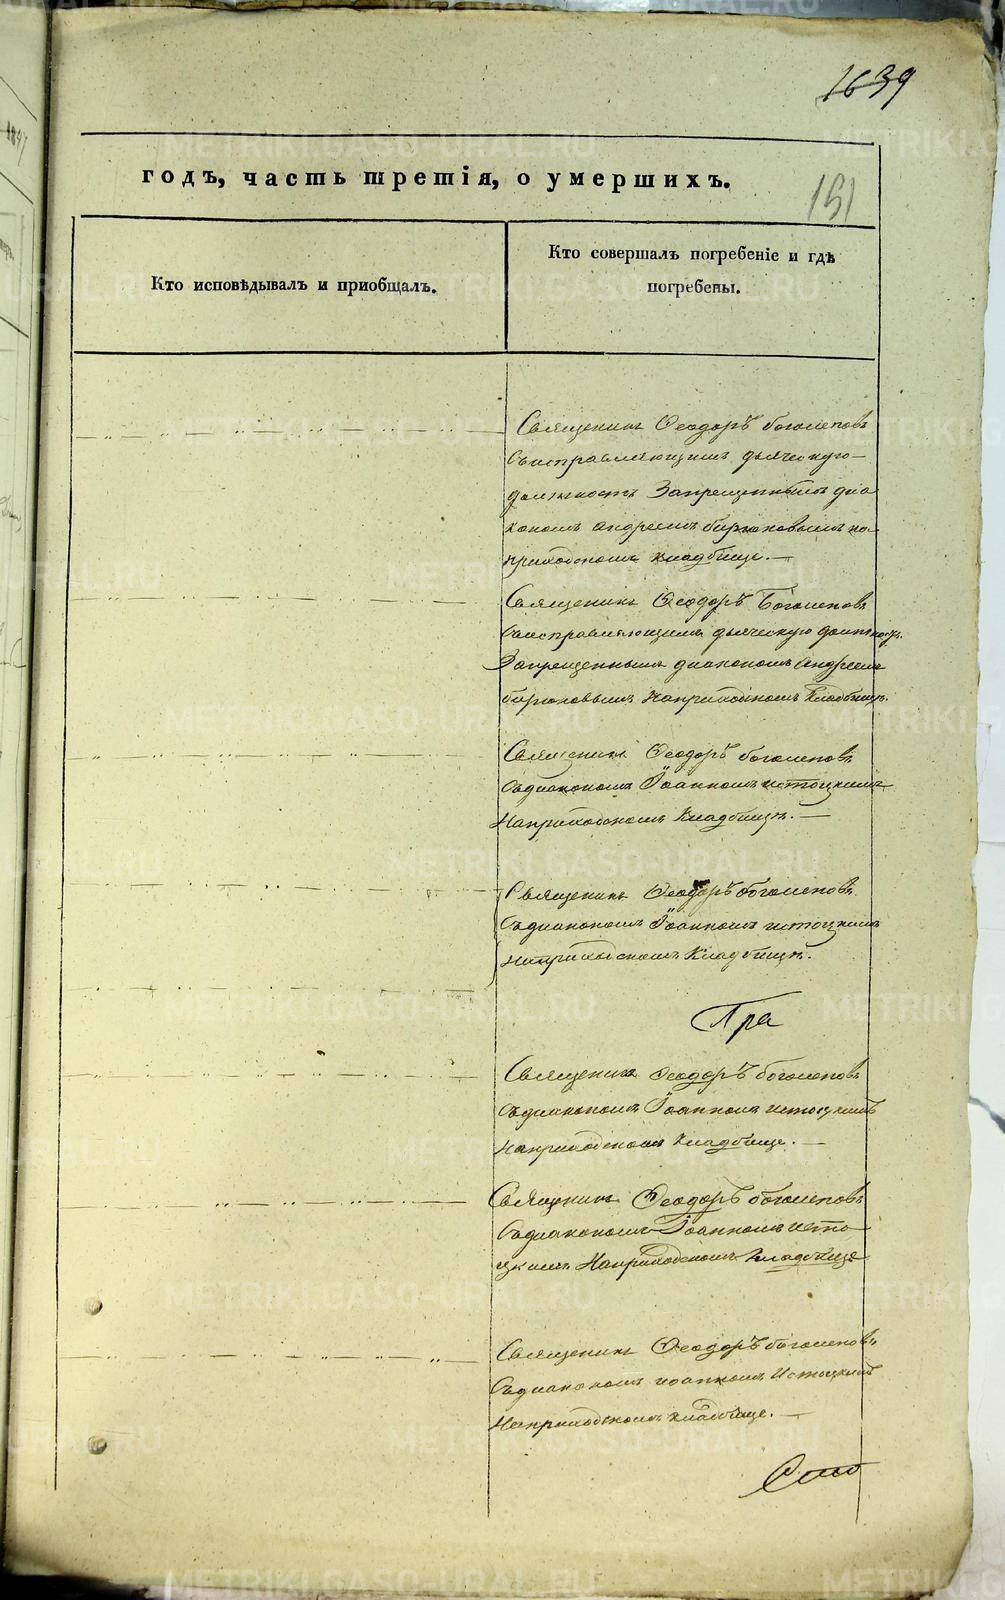 1639
годъ, часть третія, о умершихъ.
151
Кто исповѣдывалъ и приобщалъ.
Кто совершалъ погребеніе и гдѣ
погребены.
Священикъ Ѳеодоръ боголеповъ
съисправляющимъ дьяческую
должность Запрещеннымъ діа
кономъ андреемъ бирюковымъ на
приходскомъ кладбище.
Священикъ Ѳеодоръ Боголеповъ
съисправляющимъ дьяческую должность
Запрещеннымъ диакономъ андреемъ
бирюковымъ Наприходскомъ Кладбищѣ.
Священикъ Ѳеодоръ боголеповъ
съдиакономъ Іоанномъ истоцкимъ
Наприходскомъ Кладбищѣ.
Священикъ Ѳеодоръ боголеповъ
съдиакономъ Іоанномъ истоцкимъ
Наприходскомъ Кладбищѣ.
Пра
Священикъ Ѳеодоръ боголеповъ
съдиакономъ Іоанномъ истоцкимъ
Наприходскомъ Кладбище.
Священикъ Ѳеодоръ боголеповъ
съдиакономъ Іоанномъ исто
цкимъ Наприходскомъ Кладбище
Священикъ Ѳеодоръ боголеповъ
съдиакономъ иоанномъ Истоцкимъ
Наприходскомъ кладбище.
METRIKI.GASO-URAL.RU